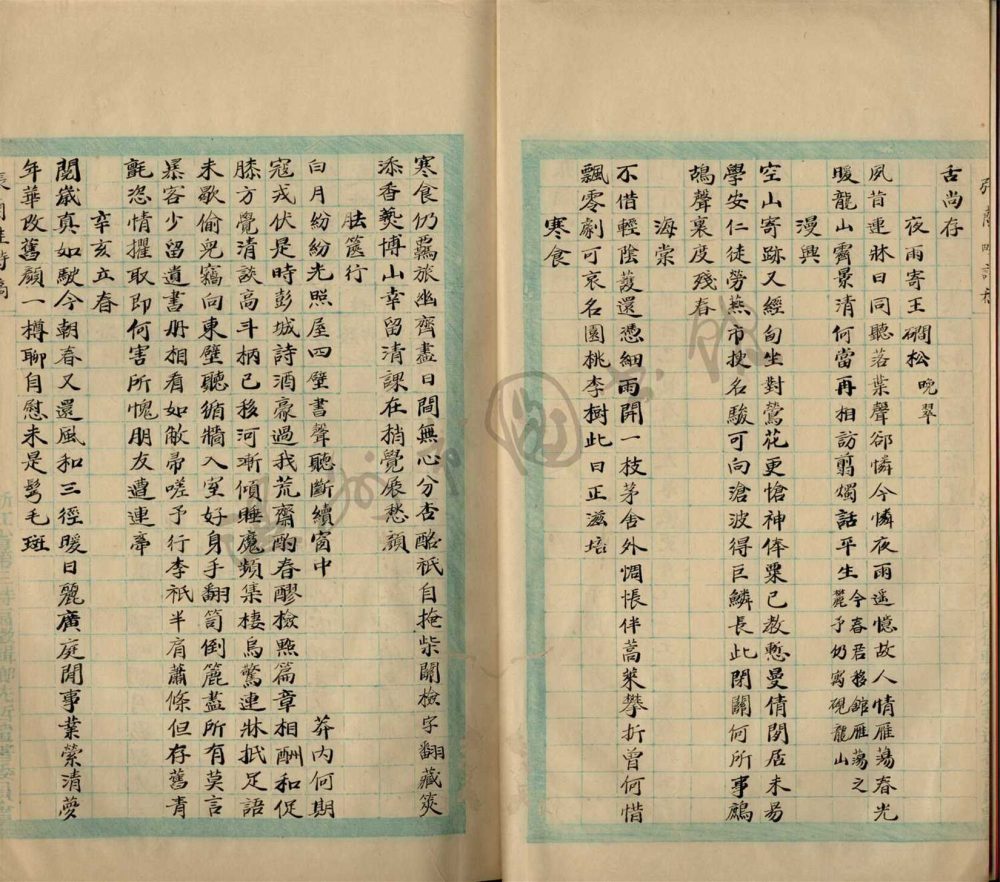 舌尚存
夜雨寄王磵松晚翠
夙昔連牀日同聽落葉聲卻憐今夜雨遥憶故人情雁蕩春光
暖龍山霽景清何當再相訪翦燭話平生今春君移館雁蕩之麓予仍寓硯龍山
漫興
空山寄跡又經旬坐對鶯花更愴神俸粟已教慙曼倩閒居未易
學安仁徒勞燕市求名駿可向滄波得巨鱗長此閉關何所事鷓
鴣聲裏度殘春
海棠
不借輕陰護還憑細雨開一枝茅舍外惆悵伴蒿萊攀折曾何惜
飄零劇可哀名園桃李樹此日正滋培
寒食
寒食仍羈旅幽齋盡日間無心分杏酪祇自掩柴關檢字翻藏筴
添香爇博山幸留清課在稍覺展愁顏
胠篋行
白月紛紛光照屋四壁書聲聽斷續窗中莽內何期
寇戎伏是時彭城詩酒豪過我荒齋酌春醪檢點篇章相酬和促
膝方覺清談高斗柄已移河漸傾睡魔頻集棲烏驚連牀抵足語
未歇偷兒竊向東壁聽循牆入室好身手翻笥倒簏盡所有莫言
暴客少留遺書册相看如敝帚嗟予行李祇半肩蕭條但存舊青
氈恣情攫取即何害所愧朋友遭連辜
辛亥立春
閱歲真如駛今朝春又還風和三徑暖日麗廣庭閒事業縈清夢
年華改舊顏一樽聊自慰未是鬢毛斑